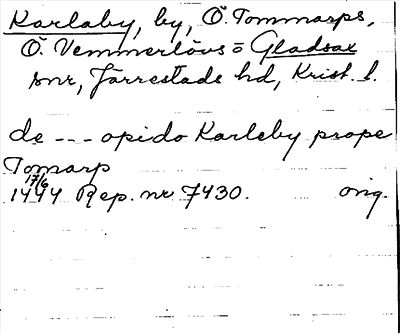 Karlaby, by, Ö. Tommarps,
Ö. Vemmerlövs = Gladsax
snr, Järrestads hd, Krist. l.
de --- opido Karleby prope
Tomarp
17/6
1444 Rep. nr 7430. orig.